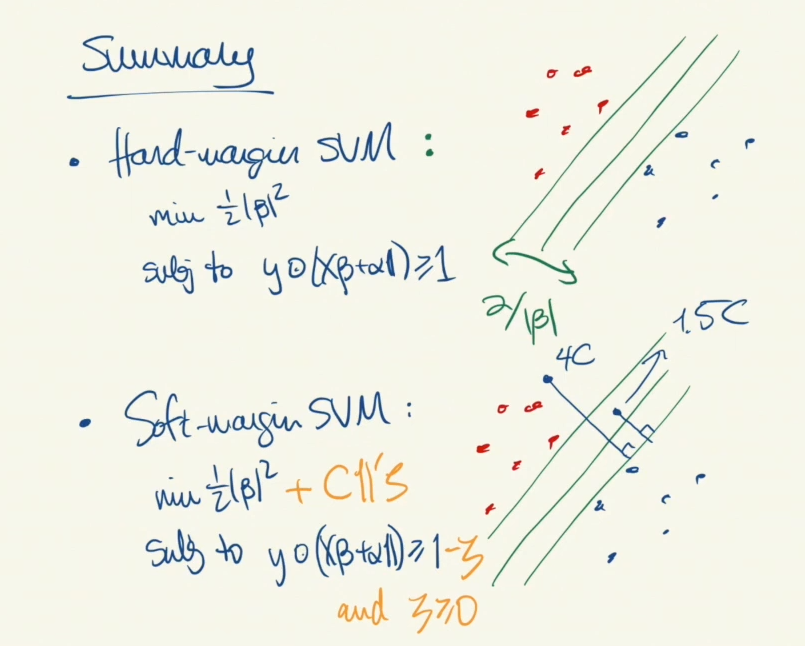 Summary
• Hard-margin SVM :
min ½|β|²
subj to y⊙(Xβ+α𝟙)≥1
2/|β|
1.5C
4C
• Soft-margin SVM :
min ½|β|² + C𝟙'ξ
subj to y⊙(Xβ+α𝟙)≥1-ξ
and ξ≥0